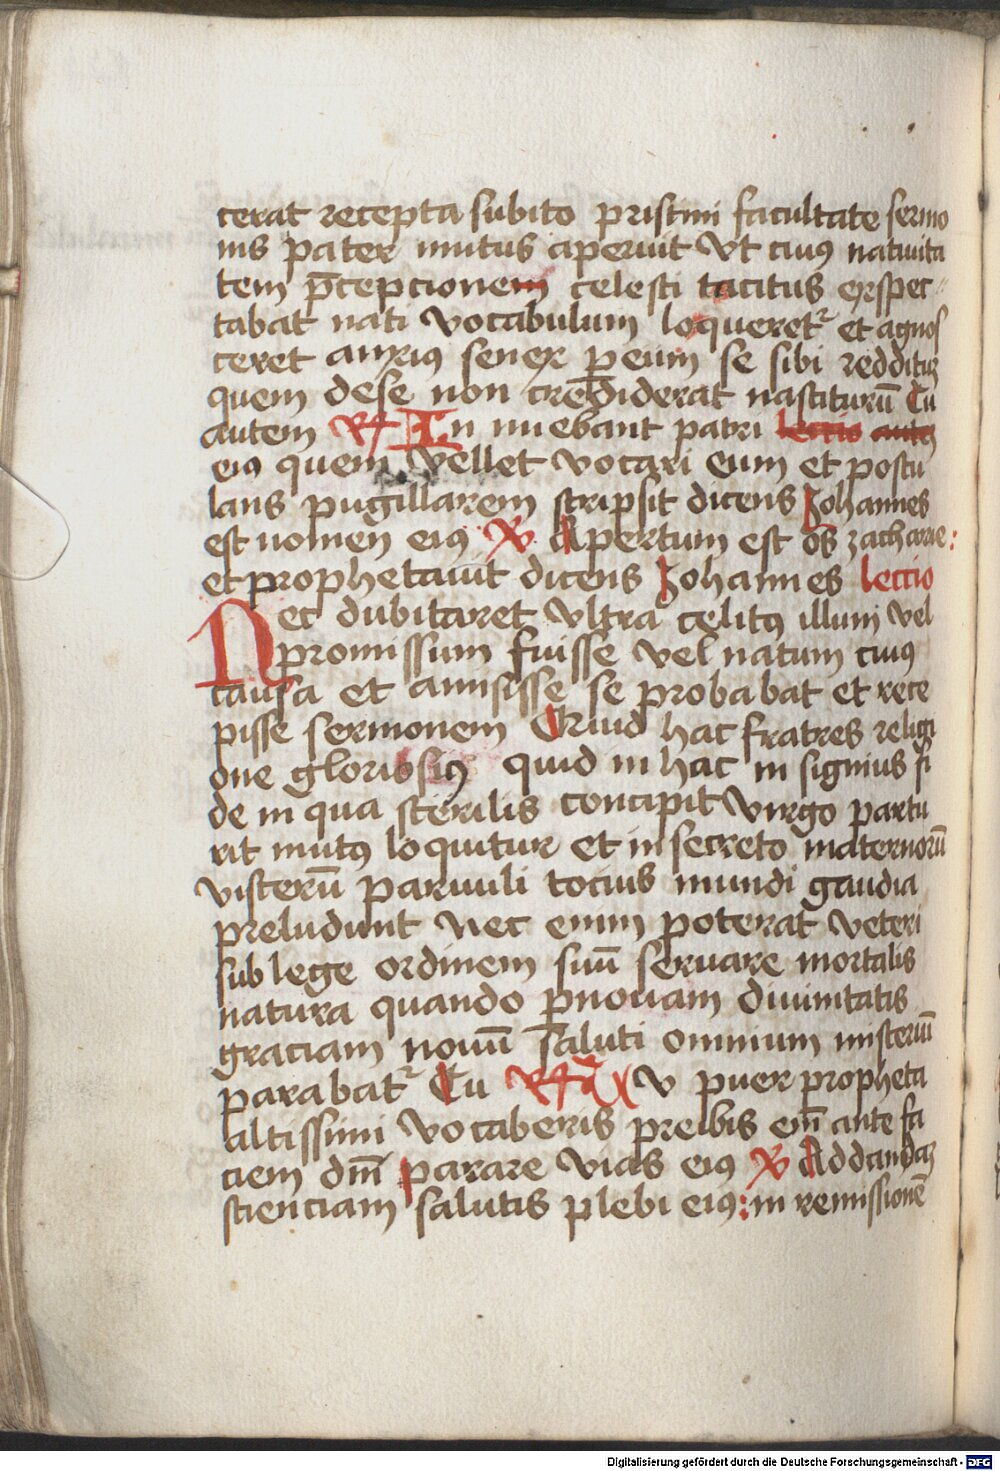 cerat recepta subito pristini facultate sermo
nis pater mutus aperuit vt cuiꝯ natiuita
tem p̄cepcionem celesti tacitus exspec
tabat nati vocabulum loqueretᷣ et agnos
ceret anxius senex peum se sibi redditum
quem dese non crediderat nasciturū Cū
autem Rꝭ In nuebant patri lectio autem
eiꝯ quem vellet vocari eum et postu
lans pugillarem scripsit dicens Johannes
est nomen eiꝯ ℣ Apertum est os zacharie:
et prophetauit dicens Johannes lectio
Nec dubitaret vltra celitꝯ illum vel
promissum fuisse vel natum cuiꝯ
causa et amisisse se probabat et rece
pisse sermonem Quid hac fratres religi
one gloriosiꝯ quid in hac in signius fi
de in qua sterilis concipit virgo partu
rit mutꝯ loquitur et in secreto maternorū
viscerū paruuli tocius mundi gaudia
preludunt nec enim poterat veteri
sub lege ordinem suū seruare mortalis
natura quando pnouam diuinitatis
graciam nouū saluti omnium misteriū
parabatᷣ Cū Rꝭ Tv puer propheta
altissimi vocaberis preibis em̄ ante fa
ciem dm̄ parare vias eiꝯ ℣ Addandaz
scienciam salutis plebi eiꝯ: in remissionē
Digitalisierung gefördert durch die Deutsche Forschungsgemeinschaft - DFG